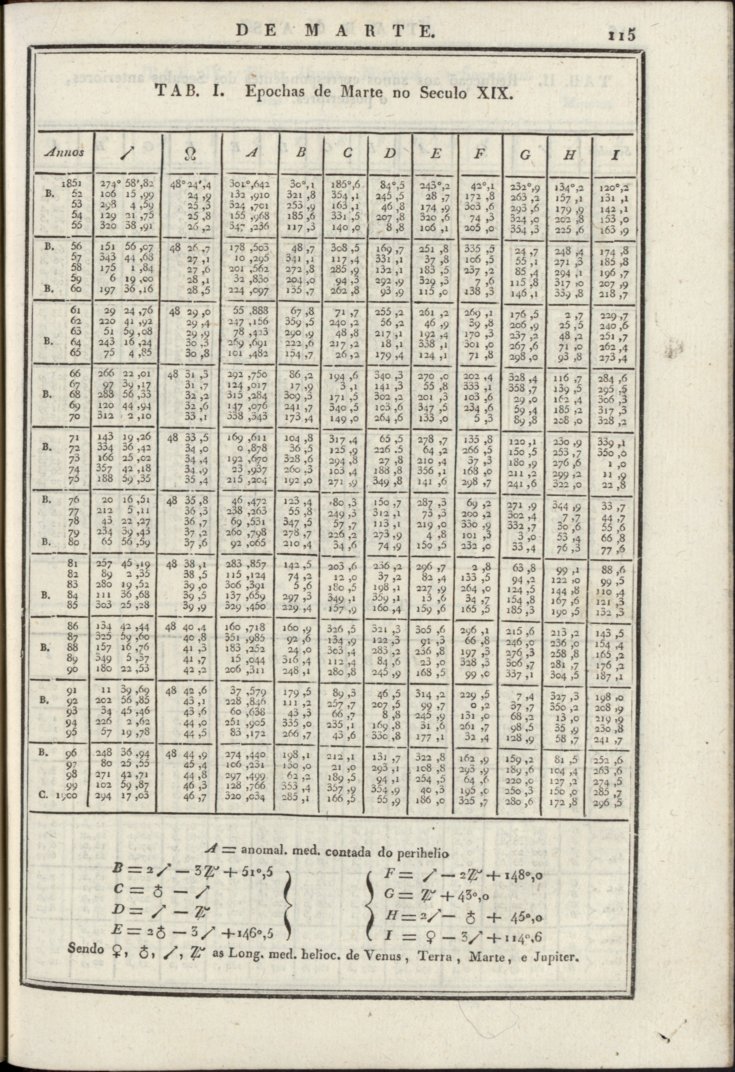 DE MARTE. 115
TAB. I. Epochas de Marte no Seculo XIX.
Annos ↗ ☊ A B C D E F G H I
1851 274° 58',82 48° 24',4 301°,642 30°,1 185°,6 84°,5 243°,2 42°,1 232°,9 134°,2 120°,2
B. 52 106 15 ,99 24 ,9 132 ,910 321 ,8 354 ,1 245 ,5 28 ,7 172 ,8 263 ,2 157 ,1 131 ,1
53 298 4 ,59 25 ,3 324 ,701 253 ,9 163 ,1 46 ,8 174 ,9 303 ,6 293 ,6 179 ,9 142 ,1
54 129 21 ,75 25 ,8 155 ,968 185 ,6 331 ,5 207 ,8 320 ,6 74 ,3 324 ,0 202 ,8 153 ,0
55 320 38 ,91 26 ,2 347 ,236 117 ,3 140 ,0 8 ,8 106 ,1 205 ,0 354 ,3 225 ,6 163 ,9
B. 56 151 56 ,07 48 26 ,7 178 ,503 48 ,7 308 ,5 169 ,7 251 ,8 335 ,5 24 ,7 248 ,4 174 ,8
57 343 44 ,68 27 ,1 10 ,295 341 ,1 117 ,4 331 ,1 37 ,8 106 ,5 55 ,1 271 ,3 185 ,8
58 175 1 ,84 27 ,6 201 ,562 272 ,8 285 ,9 132 ,1 183 ,5 237 ,2 85 ,4 294 ,1 196 ,7
59 6 19 ,00 28 ,1 32 ,830 204 ,0 94 ,3 292 ,9 329 ,3 7 ,6 115 ,8 317 ,0 207 ,9
B. 60 197 36 ,16 28 ,5 224 ,097 135 ,7 262 ,8 93 ,9 115 ,0 138 ,3 146 ,1 339 ,8 218 ,7
61 29 24 ,76 48 29 ,0 55 ,888 67 ,8 71 ,7 255 ,2 261 ,2 269 ,1 176 ,5 2 ,7 229 ,7
62 220 41 ,92 29 ,4 247 ,156 359 ,5 240 ,2 56 ,2 46 ,9 39 ,8 206 ,9 25 ,5 240 ,6
63 51 59 ,08 29 ,9 78 ,423 290 ,9 48 ,8 217 ,1 192 ,4 170 ,3 237 ,2 48 ,2 251 ,7
B. 64 243 16 ,24 30 ,3 269 ,691 222 ,6 217 ,2 18 ,1 338 ,1 301 ,0 267 ,6 71 ,0 262 ,4
65 75 4 ,85 30 ,8 101 ,482 154 ,7 26 ,2 179 ,4 124 ,1 71 ,8 298 ,0 93 ,8 273 ,4
66 266 22 ,01 48 31 ,3 292 ,750 86 ,2 194 ,6 340 ,3 270 ,0 202 ,4 328 ,4 116 ,7 284 ,6
67 97 39 ,17 31 ,7 124 ,017 17 ,9 3 ,1 141 ,3 55 ,8 333 ,1 358 ,7 139 ,5 295 ,5
B. 68 288 56 ,33 32 ,2 315 ,284 309 ,3 171 ,5 302 ,2 201 ,3 103 ,6 29 ,0 162 ,4 306 ,3
69 120 44 ,94 32 ,6 147 ,076 241 ,7 340 ,5 103 ,6 347 ,5 234 ,6 59 ,4 185 ,2 317 ,3
70 312 2 ,10 33 ,1 338 ,343 173 ,4 149 ,0 264 ,6 133 ,0 5 ,3 89 ,8 208 ,0 328 ,2
71 143 19 ,26 48 33 ,5 169 ,611 104 ,8 317 ,4 65 ,5 278 ,7 135 ,8 120 ,1 230 ,9 339 ,1
B. 72 334 36 ,42 34 ,0 0 ,878 36 ,5 125 ,9 226 ,5 64 ,2 266 ,5 150 ,5 253 ,7 350 ,0
73 166 25 ,02 34 ,4 192 ,670 328 ,6 294 ,8 27 ,8 210 ,4 37 ,3 180 ,9 276 ,6 1 ,0
74 357 42 ,18 34 ,9 23 ,937 260 ,3 103 ,4 188 ,8 356 ,1 168 ,0 211 ,2 299 ,2 11 ,9
75 188 59 ,35 35 ,4 215 ,204 192 ,0 271 ,9 349 ,8 141 ,6 298 ,7 241 ,6 322 ,0 22 ,8
B. 76 20 16 ,51 48 35 ,8 46 ,472 123 ,4 80 ,3 150 ,7 287 ,3 69 ,2 271 ,9 344 ,9 33 ,7
77 212 5 ,11 36 ,3 238 ,263 55 ,8 249 ,3 312 ,1 73 ,3 200 ,2 302 ,4 7 ,7 44 ,7
78 43 22 ,27 36 ,7 69 ,531 347 ,5 57 ,7 113 ,1 219 ,0 330 ,9 332 ,7 30 ,6 55 ,6
79 234 39 ,43 37 ,2 260 ,798 278 ,7 226 ,2 273 ,9 4 ,8 101 ,3 3 ,0 53 ,4 66 ,8
B. 80 65 56 ,59 37 ,6 92 ,065 210 ,4 34 ,6 74 ,9 150 ,5 232 ,0 33 ,4 76 ,3 77 ,6
81 257 45 ,19 48 38 ,1 283 ,857 142 ,5 203 ,6 236 ,2 296 ,7 2 ,8 63 ,8 99 ,1 88 ,6
82 89 2 ,35 38 ,5 115 ,124 74 ,2 12 ,0 37 ,2 82 ,4 133 ,5 94 ,2 122 ,0 99 ,5
83 280 19 ,52 39 ,0 306 ,391 5 ,6 180 ,5 198 ,1 227 ,9 264 ,0 124 ,5 144 ,8 110 ,4
B. 84 111 36 ,68 39 ,5 137 ,659 297 ,3 349 ,1 359 ,1 13 ,6 34 ,7 154 ,8 167 ,6 121 ,3
85 303 25 ,28 39 ,9 329 ,450 229 ,4 157 ,9 160 ,4 159 ,6 165 ,5 185 ,3 190 ,5 132 ,3
86 134 42 ,44 48 40 ,4 160 ,718 160 ,9 326 ,5 321 ,3 305 ,6 296 ,1 215 ,6 213 ,2 143 ,5
87 325 59 ,60 40 ,8 351 ,985 92 ,6 134 ,9 122 ,3 91 ,3 66 ,8 246 ,0 236 ,0 154 ,4
B. 88 157 16 ,76 41 ,3 183 ,252 24 ,0 303 ,4 283 ,2 236 ,8 197 ,3 276 ,3 258 ,8 165 ,2
89 349 5 ,37 41 ,7 15 ,044 316 ,4 112 ,4 84 ,6 23 ,0 328 ,3 306 ,7 281 ,7 176 ,2
90 180 22 ,53 42 ,2 206 ,311 248 ,1 280 ,8 245 ,9 168 ,5 99 ,0 337 ,1 304 ,5 187 ,1
91 11 39 ,69 48 42 ,6 37 ,579 179 ,5 89 ,3 46 ,5 314 ,2 229 ,5 7 ,4 327 ,3 198 ,0
B. 92 202 56 ,85 43 ,1 228 ,846 111 ,2 257 ,7 207 ,5 99 ,7 0 ,2 37 ,7 350 ,2 208 ,9
93 34 45 ,46 43 ,6 60 ,638 43 ,3 66 ,7 8 ,8 245 ,9 131 ,0 68 ,2 13 ,0 219 ,9
94 226 2 ,62 44 ,0 251 ,905 335 ,0 235 ,1 169 ,8 31 ,6 261 ,7 98 ,5 35 ,9 230 ,8
95 57 19 ,78 44 ,5 83 ,172 266 ,7 43 ,6 330 ,8 177 ,1 32 ,4 128 ,9 58 ,7 241 ,7
B. 96 248 36 ,94 48 44 ,9 274 ,440 198 ,1 212 ,1 131 ,7 322 ,8 162 ,9 159 ,2 81 ,5 252 ,6
97 80 25 ,55 45 ,4 106 ,231 130 ,0 21 ,0 293 ,1 108 ,8 293 ,9 189 ,6 104 ,4 263 ,6
98 271 42 ,71 44 ,8 297 ,499 62 ,2 189 ,5 94 ,1 254 ,5 64 ,6 220 ,0 127 ,2 274 ,5
99 102 59 ,87 46 ,3 128 ,766 353 ,4 357 ,9 354 ,9 40 ,3 195 ,0 250 ,3 150 ,0 285 ,7
C. 1900 294 17 ,03 46 ,7 320 ,034 285 ,1 166 ,5 55 ,9 186 ,0 325 ,7 280 ,6 172 ,8 296 ,5
A = anomal. med. contada do perihelio
B = 2↗ − 3♃ + 51°,5 F = ↗ − 2♃ + 148°,0
C = ♁ − ↗ G = ♃ + 43°,0
D = ↗ − ♃ H = 2↗ − ♁ + 45°,0
E = 2♁ − 3↗ + 146°,5 I = ♀ − 3↗ + 114°,6
Sendo ♀, ♁, ↗, ♃ as Long. med. helioc. de Venus, Terra, Marte, e Jupiter.